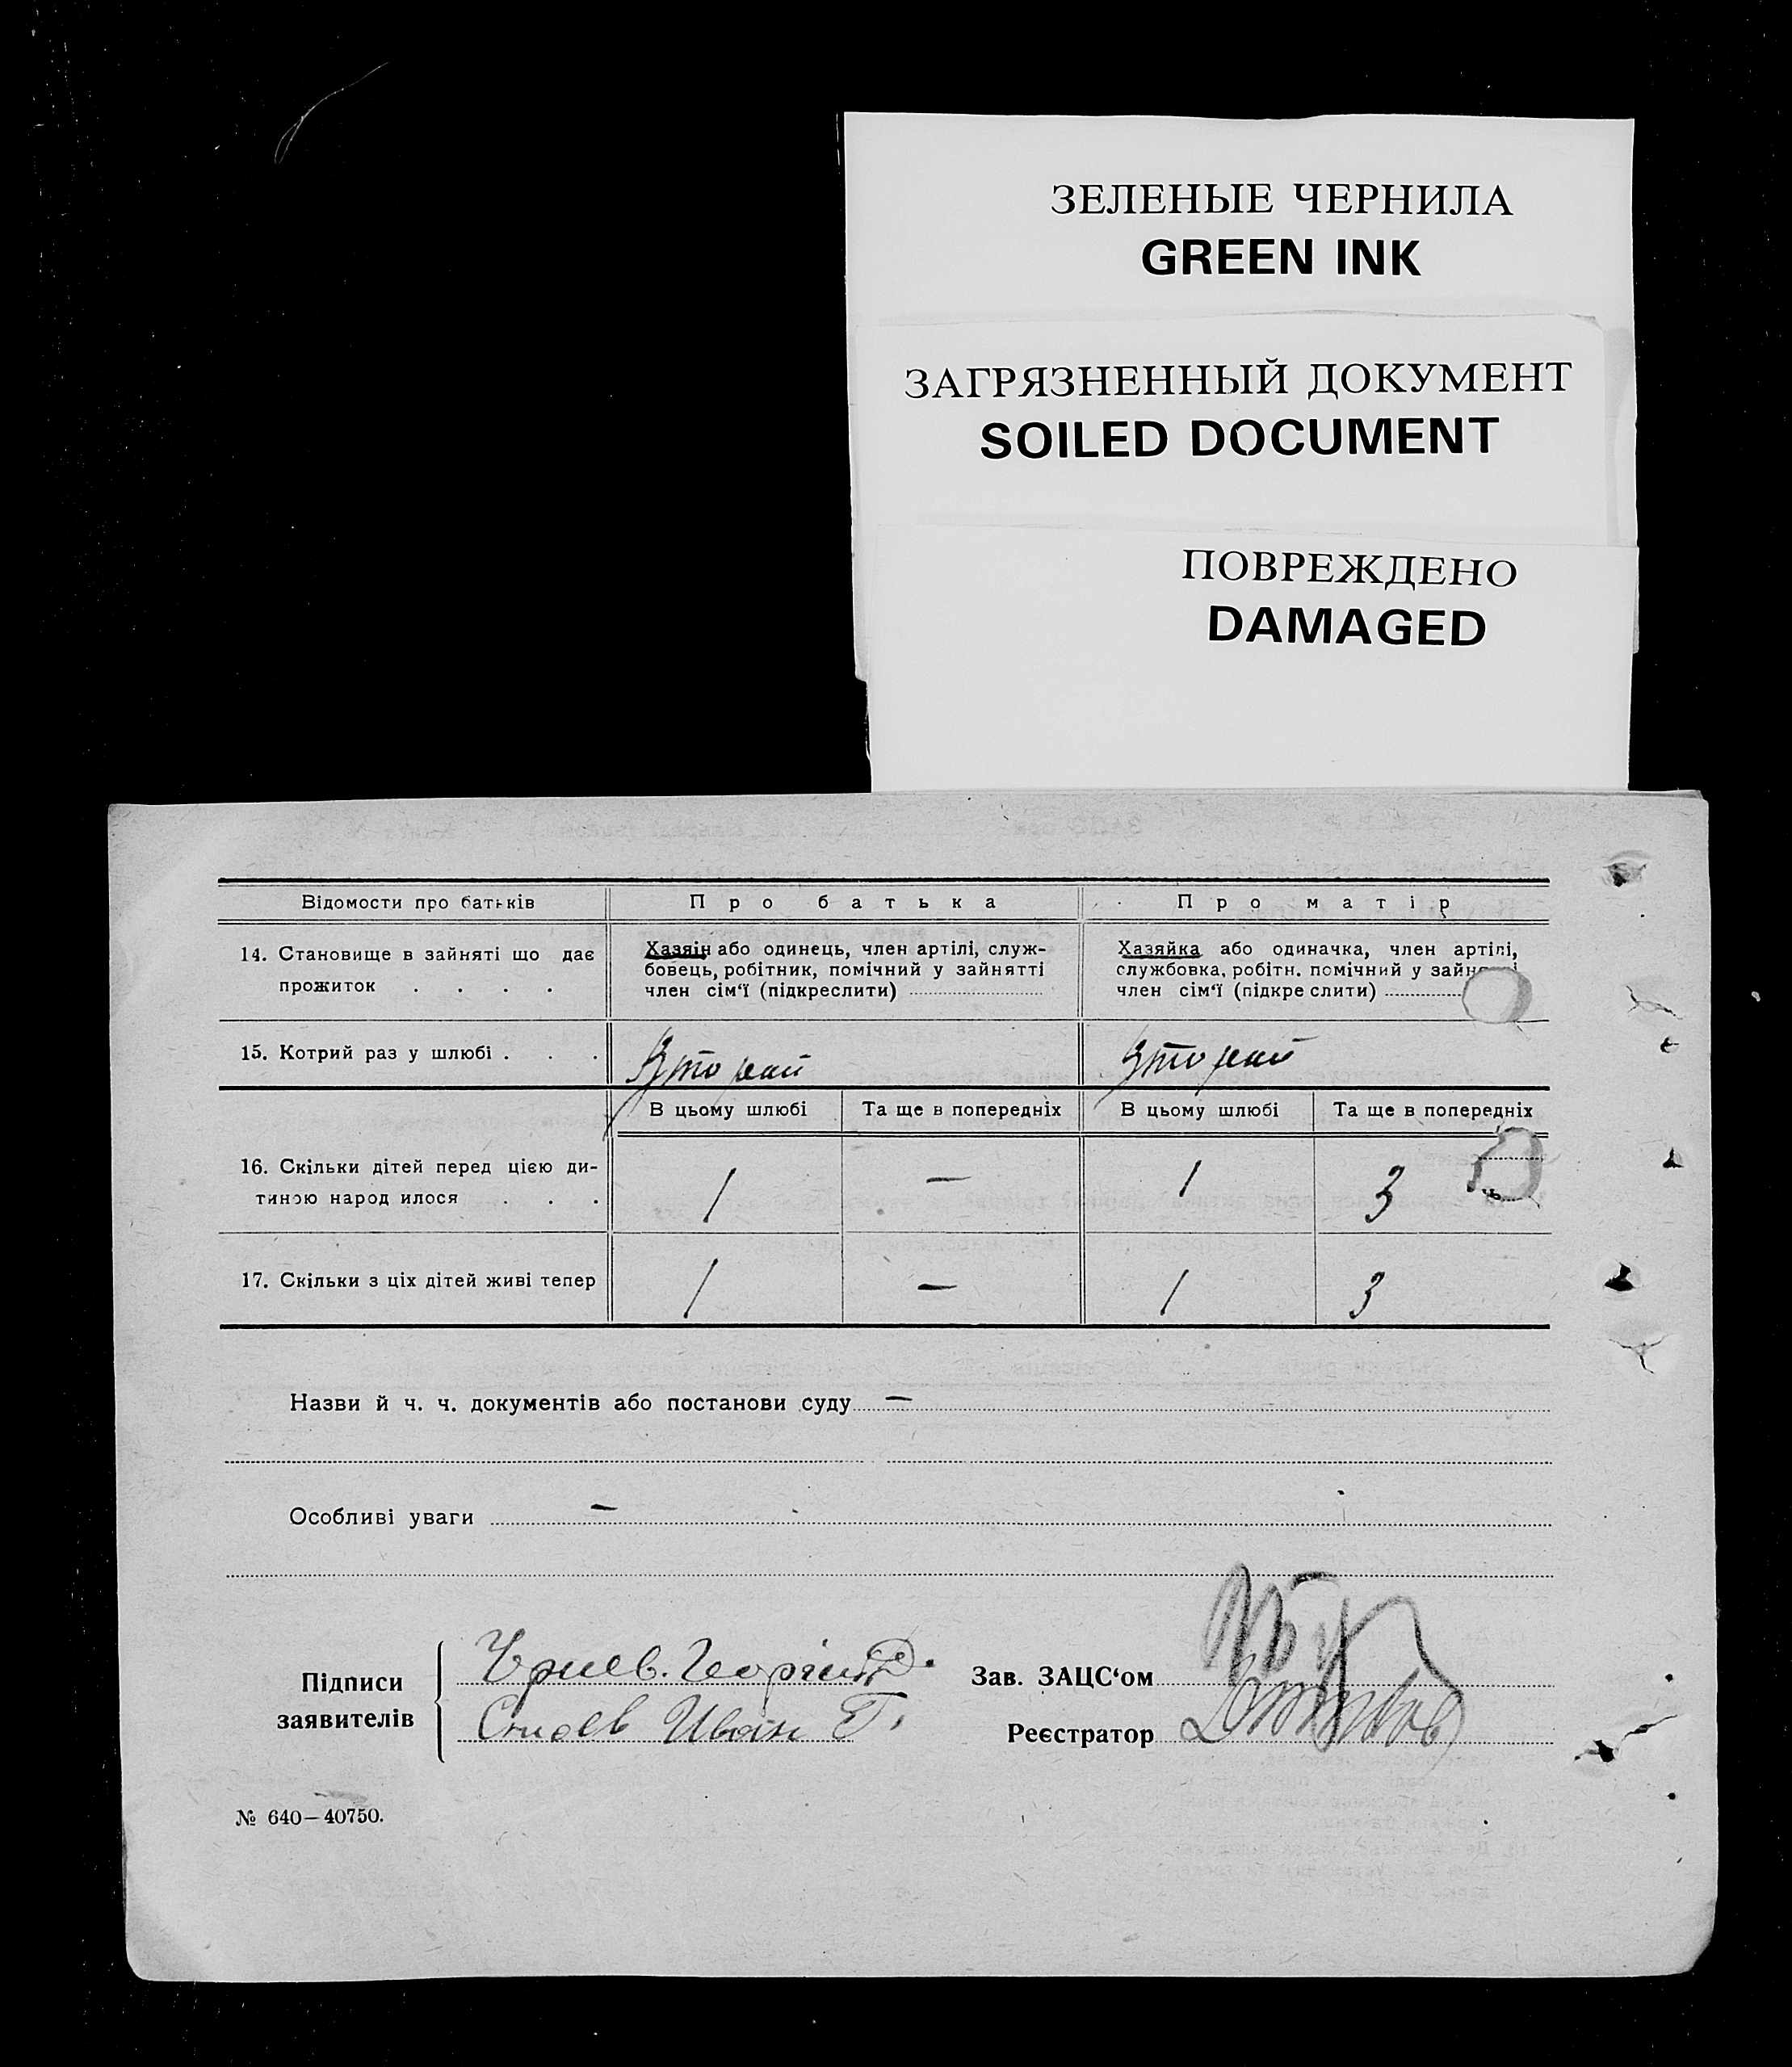 ЗЕЛЕНЫЕ ЧЕРНИЛА
GREEN INK
ЗАГРЯЗНЕННЫЙ ДОКУМЕНТ
SOILED DOCUMENT
ПОВРЕЖДЕНО
DAMAGED
Відомости про батьків
Про батька
Про матір
14. Становище в зайняті що дає
прожиток . . . .
Хазяін або одинець, член артілі, служ-
бовець, робітник, помічний у зайнятті
член сім‘ї (підкреслити)
Хазяйка або одиначка, член артілі,
службовка, робітн. помічний у
член сім‘ї (підкреслити)
15. Котрий раз у шлюбі . . .
Второй
Второй
В цьому шлюбі
Та ще в попередніх
В цьому шлюбі
Та ще в попередніх
16. Скільки дітей перед цією ди-
тиною народилося . . .
1
—
1
3
17. Скільки з ціх дітей живі тепер
1
—
1
3
Назви й ч. ч. документів або постанови суду —
Особливі уваги —
Підписи
заявителів
Иван
Зав. ЗАЦС‘ом
Реєстратор
№ 640—40750.